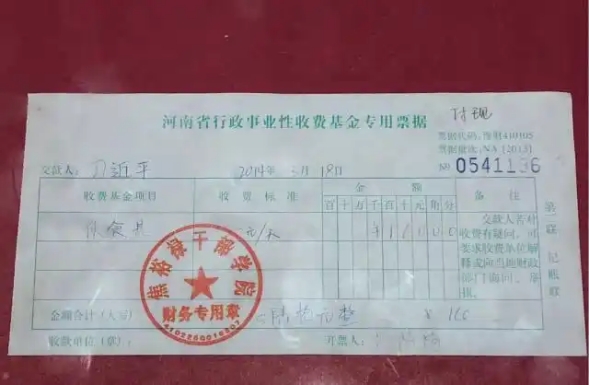 河南省行政事业性收费基金专用票据
付现
票据代码: 豫财410105
票据批次: NA [2013]
№ 0541136
交款人: 习近平 2014年 3月 18日
收费基金项目 收费标准 金额 备注
百十万千百十元角分
伙食费
元/天
交款人若对收费有疑问,可要求收费单位解释或向当地财政部门查询、举报。
第二联 记账联
焦裕禄干部学院
财务专用章
4102250016207
金额合计(大写) 陆拾元整 ¥ 160
收款单位(章): 开票人: